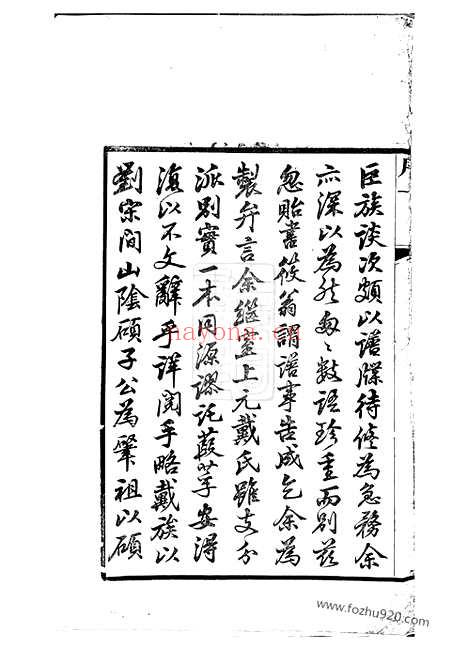 序
巨族談次頗以譜牒待修為急務余
亦深以為然匆〻數語珍重而別茲
忽貽書筱翁謂譜事告成乞余為
製弁言余繼室上元戴氏雖支分
派別實一本同源謬託葭莩安得
復以不文辭乎詳閱手略戴族以
劉宋間山陰碩子公為肇祖以碩
hayona.cn
www.fozhu920.com